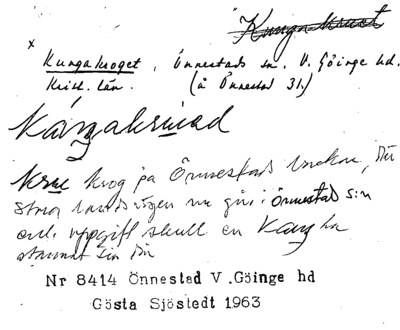 x
Kungakroget, Önnestads sn. V. Göinge hd.
Krist. län. (å Önnestad 31.)
krog på Önnestads backar, där
stora landsvägen nu går i Önnestad s:n
enl. uppgift skull en Kung ha
stannat sin
Nr 8414 Önnestad V .Göinge hd
Gösta Sjöstedt 1963